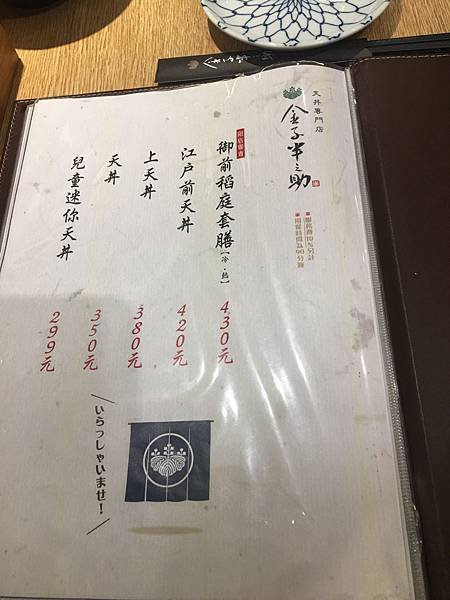 天丼專門店
金子半之助
服務費10%另計
用餐時間為90分鐘
御前稻庭套膳【冷・熱】
430元
江戶前天丼
420元
上天丼
380元
天丼
350元
兒童迷你天丼
299元
いらっしゃいませ!